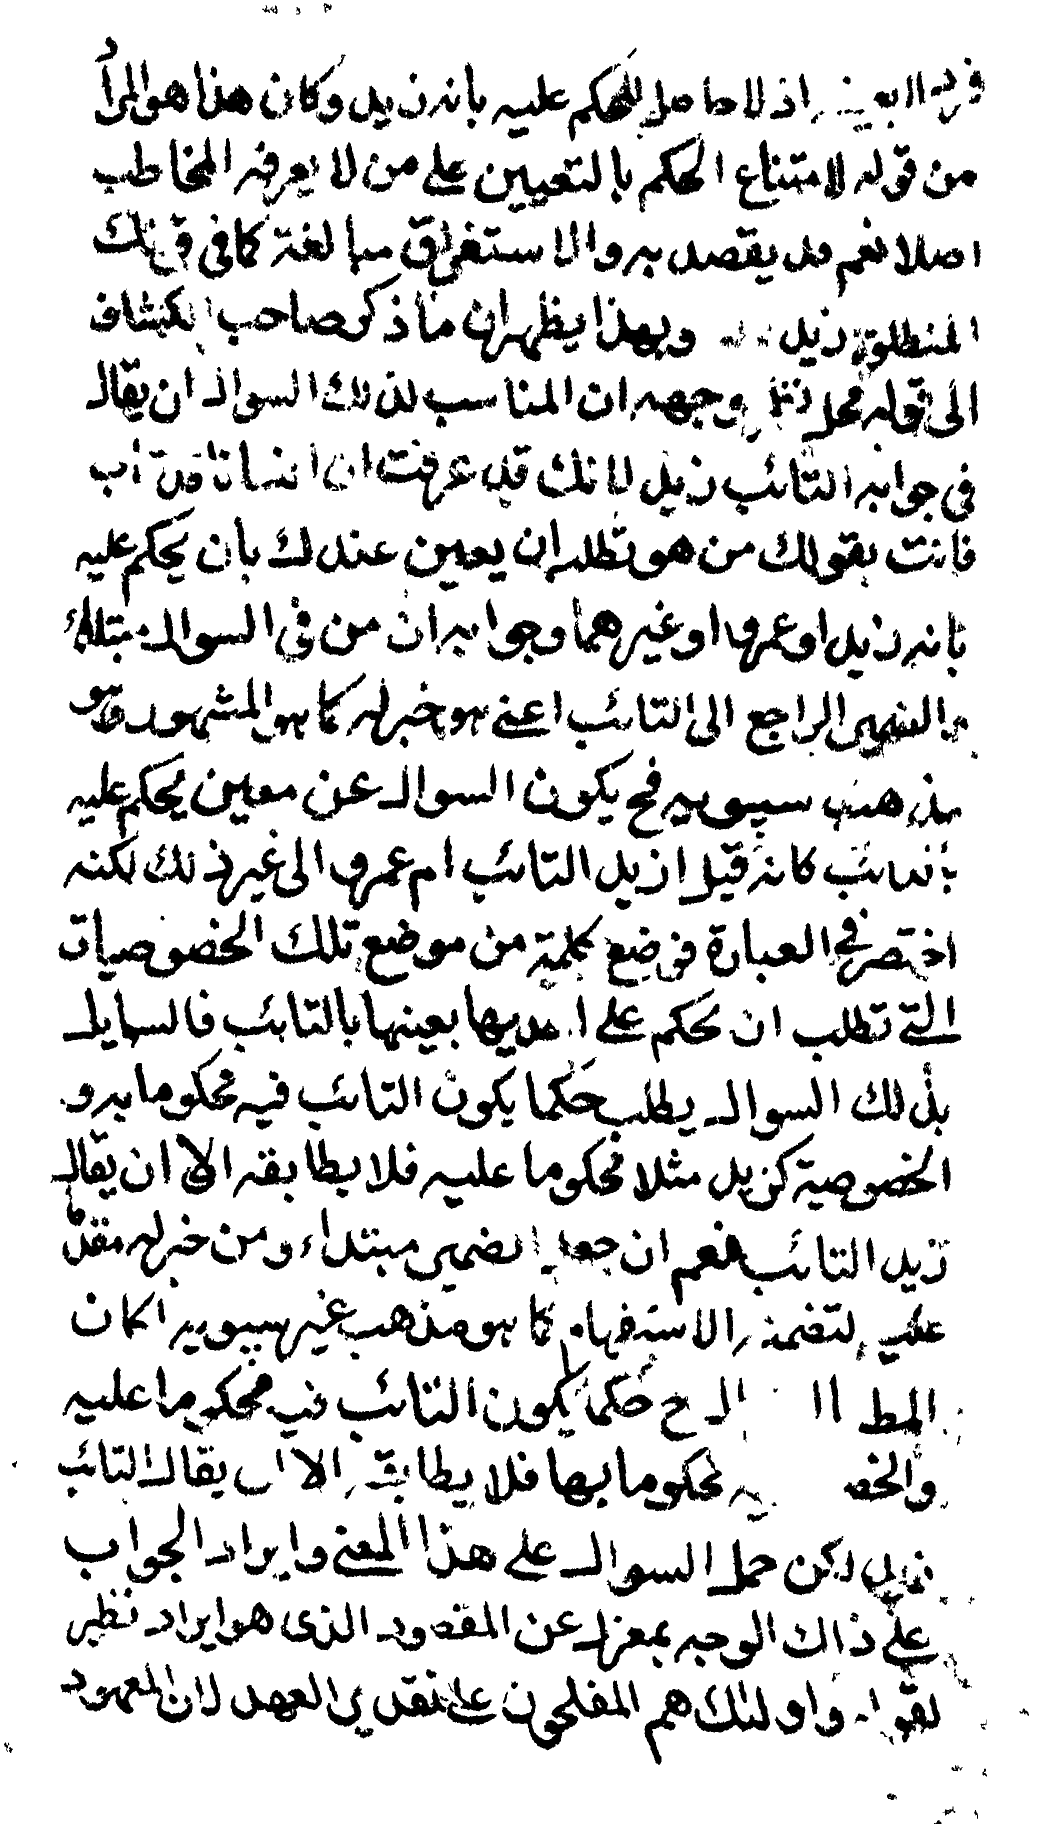 فرد بعينه اذ لا حاصل للحكم عليه بانه زيد وكان هذا هو المراد
من قوله لامتناع الحكم بالتعيين على من لا يعرفه المخاطب
اصلا نعم قد يقصد به والاستغراق مبالغة كما في قولك
المنطلق زيد وبهذا يظهر ان ما ذكر صاحب الكشاف
الى قوله محل نظر وجهه ان المناسب لذلك السوال ان يقال
في جوابه التائب زيد لانك قد عرفت ان انسانا قد تاب
فانت بقولك من هو تطلب ان يعين عندك بان يحكم عليه
بانه زيد او عمرو او غيرهما وجوابه ان من في السوال مبتداء
والضمير الراجع الى التائب اعني هو خبر له كما هو المشهور
مذهب سيبويه فح يكون السوال عن معين يحكم عليه
بانه تائب كانه قيل ازيد التائب ام عمرو الى غير ذلك لكنه
اختصر في العبارة فوضع كلمة من موضع تلك الخصوصيات
التي تطلب ان يحكم على احديها بعينها بالتائب فالسايل
بذلك السوال يطلب حكما يكون التائب فيه محكوما به و
الخصوصية كزيد مثلا محكوما عليه فلا يطابقه الا ان يقال
زيد التائب نعم ان جعل الضمير مبتداء ومن خبر له مقدما
عليه لتضمنه الاستفهام كما هو مذهب غير سيبويه كان
ال ح حكما يكون التائب فيه محكوما عليه
محكوما بها فلا يطابقه الا ان يقال التائب
زيد لكن حمل السوال على هذا المعنى وايراد الجواب
على ذاك الوجه بمعزل عن المقصود الذى هو ايراد نظير
لقوله واولئك هم المفلحون على تقدير العهد لان المعهود